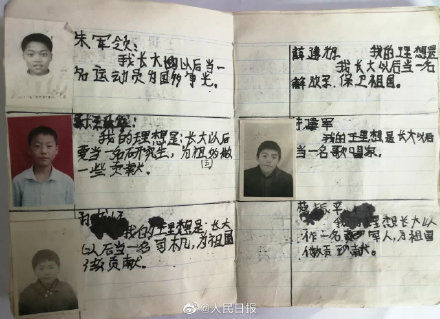 朱军
我长大以后当一
名运动员为国争光。
我的理想是:长大以后
要当一名研究生,为祖国做
一些贡献。
我的理想是,长大
以后当一名司机,为祖国
做贡献。
薛 我的理想是
我长大以后当一名
解放军,保卫祖国。
军
我的理想是长大以后
当一名歌唱家。
振
我理想长大以
作一名 军人,为祖国
做 贡献。
@人民日报